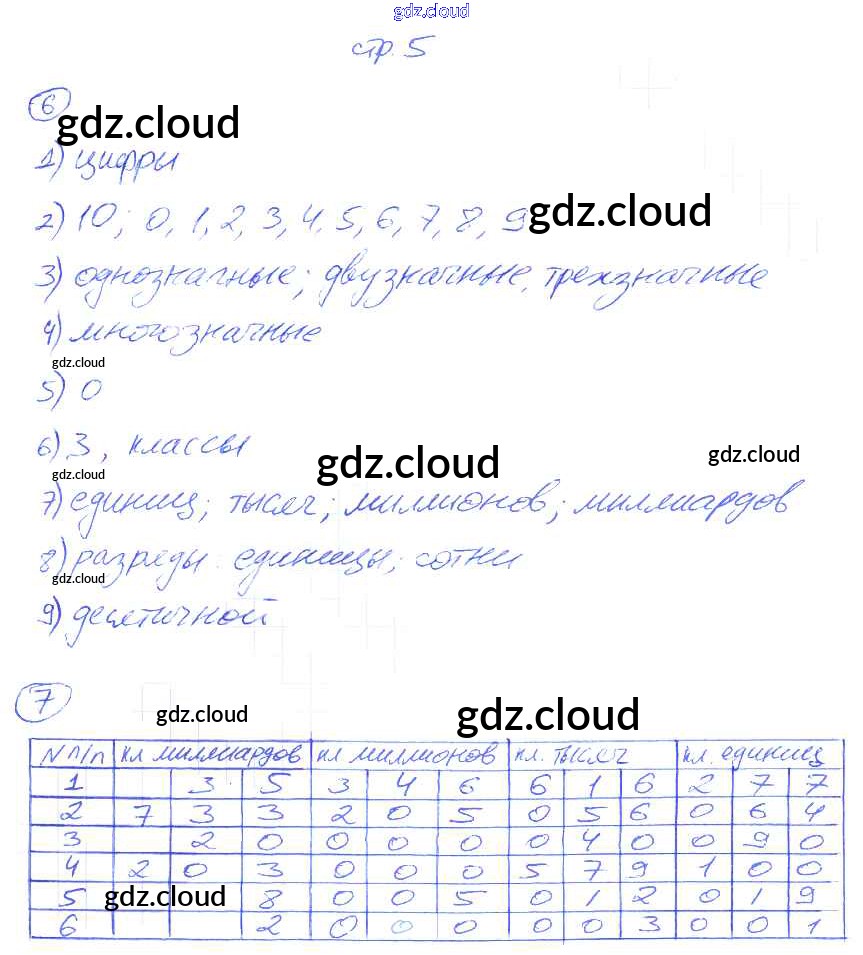 gdz.cloud
стр. 5
6
gdz.cloud
1) цифры
2) 10; 0, 1, 2, 3, 4, 5, 6, 7, 8, 9
gdz.cloud
3) однозначные; двузначные, трехзначные
4) многозначные
gdz.cloud
5) 0
6) 3, классы
gdz.cloud
gdz.cloud
gdz.cloud
7) единиц; тысяч; миллионов; миллиардов
8) разряды: единицы; сотни
gdz.cloud
9) десятичной
7
gdz.cloud
gdz.cloud
N п/п кл миллиардов кл миллионов кл. тысяч кл. единиц
1 3 5 3 4 6 6 1 6 2 7 7
2 7 3 3 2 0 5 0 5 6 0 6 4
3 2 0 0 0 0 0 4 0 0 9 0
4 2 0 3 0 0 0 5 7 9 1 0 0
5 8 0 0 5 0 1 2 0 1 9
gdz.cloud
6 2 0 0 0 0 0 3 0 0 1